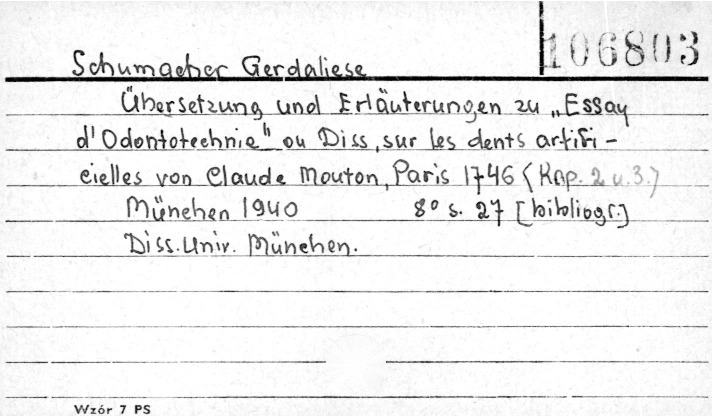 106803
Schumacher Gerdaliese
Übersetzung und Erläuterungen zu „Essay
d'Odontotechnie" ou Diss, sur les dents artifi-
cielles von Claude Mouton, Paris 1746 (Kap. 2 u. 3.)
München 1940 8° s. 27 [bibliogr.]
Diss. Univ. München.
Wzór 7 PS